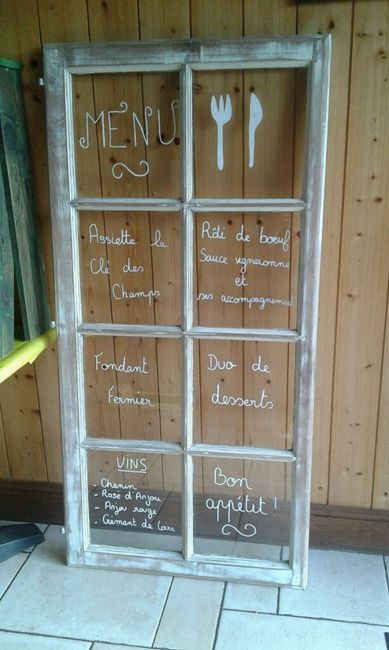 MENU
Assiette la
Clé des
Champs
Rôti de bœuf
Sauce vigneronne
et
ses accompagnements
Fondant
Fermier
Duo de
desserts
VINS
- Chenin
- Rosé d'Anjou
- Anjou rouge
- Crémant de Loire
Bon
appétit !